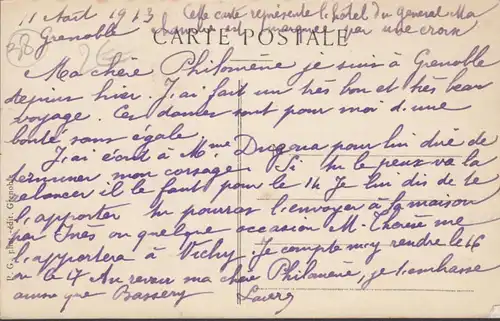 11 Août 1913 Cette carte représente l'hôtel du General Ma
Grenoble chambre est marquée par une croix
CARTE POSTALE
Ma chère Philomène je suis à Grenoble
depuis hier. J'ai fait un très bon et très beau
voyage. Ces dames sont pour moi d'une
bonté sans égale.
J'ai écrit à Mme pour lui dire de
terminer mon corsage. Si tu le peux va la
relancer il le faut pour le 14 Je lui dis de te
l'apporter tu pourras l'envoyer à la maison
par Inès ou quelque occasion M. me
l'apportera à Vichy. Je compte m'y rendre le 16
ou le 17 Au revoir ma chère Philomène, je t'embrasse
ainsi que
P. G. phot.-édit. Grenoble